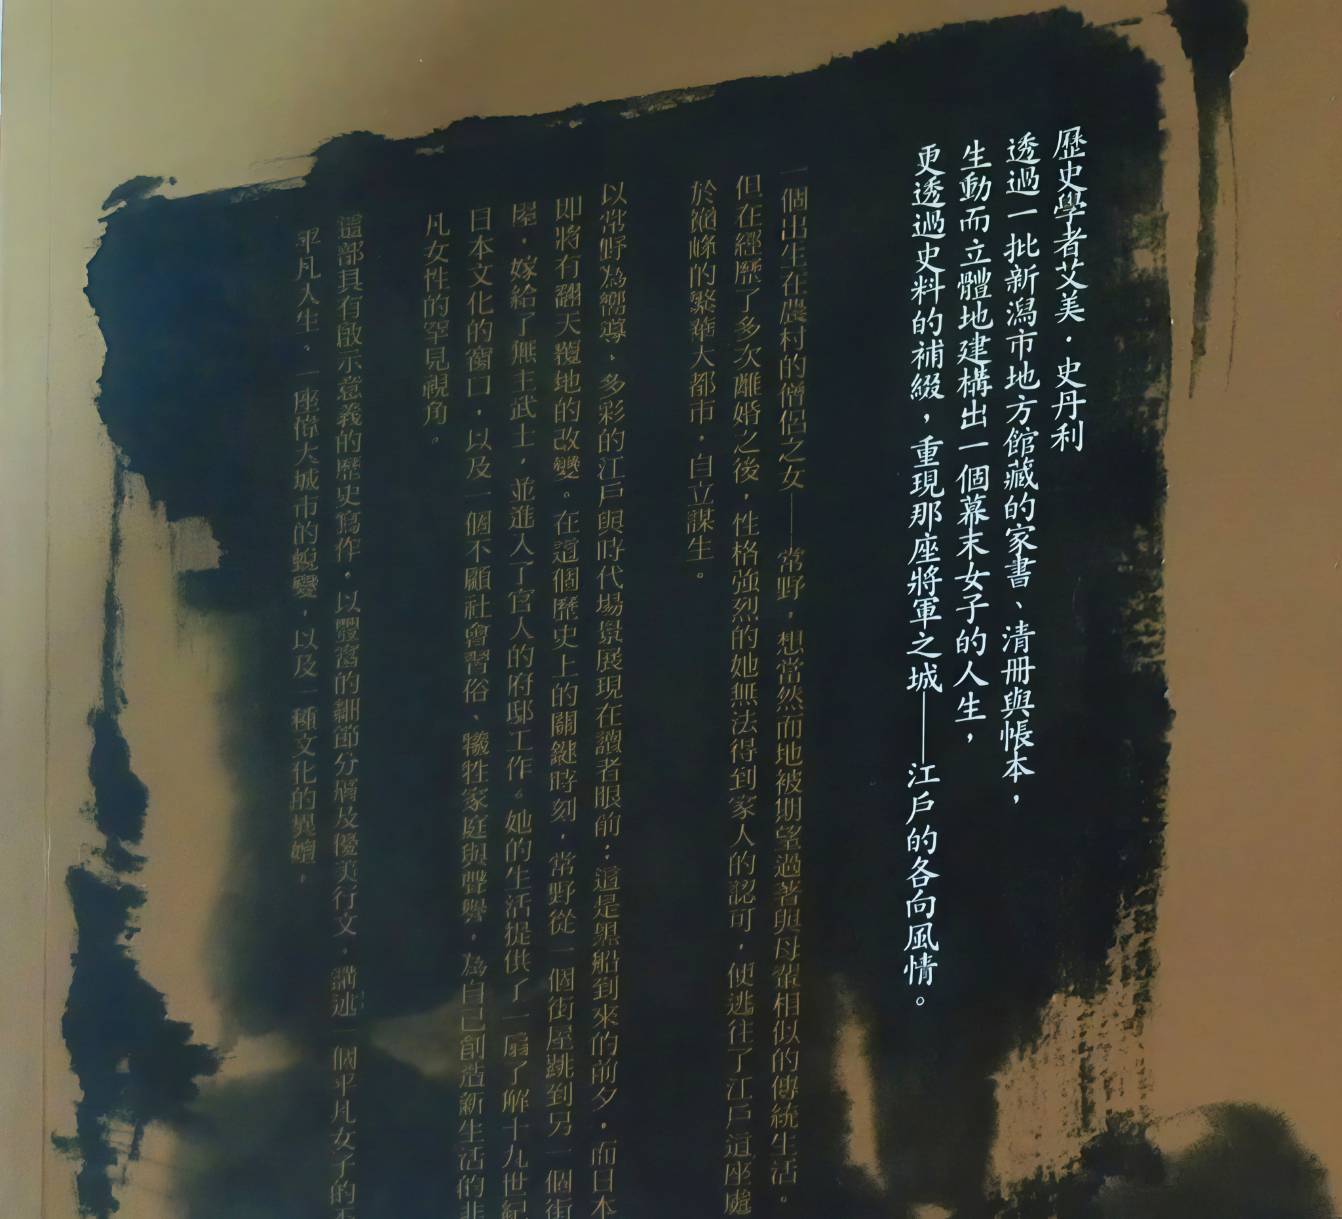 歷史學者艾美・史丹利
透過一批新潟市地方館藏的家書、清冊與帳本，
生動而立體地建構出一個幕末女子的人生，
更透過史料的補綴，重現那座將軍之城——江戶的各向風情。
一個出生在農村的僧侶之女——常野，想當然而地被期望過著與母輩相似的傳統生活。
但在經歷了多次離婚之後，性格強烈的她無法得到家人的認可，便逃往了江戶這座處
於巔峰的繁華大都市，自立謀生。
以常野為嚮導，多彩的江戶與時代場景展現在讀者眼前：這是黑船到來的前夕，而日本
即將有翻天覆地的改變。在這個歷史上的關鍵時刻，常野從一個街屋跳到另一個街
屋，嫁給了無主武士，並進入了官人的府邸工作。她的生活提供了一扇了解十九世紀
日本文化的窗口，以及一個不顧社會習俗、犧牲家庭與聲譽，為自己創造新生活的非
凡女性的罕見視角。
這部具有啟示意義的歷史寫作，以豐富的細節分層及優美行文，講述一個平凡女子的
平凡人生、一座偉大城市的蛻變，以及一種文化的異嬗，